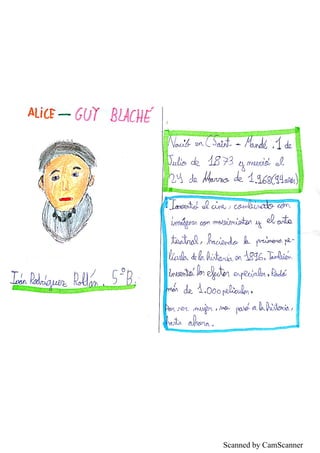 ALICE – GUY BLACHÉ
Nació en (Saint - Mandé, 1 de
Julio de 1873 y murió el
24 de Marzo de 1.968(94 años)
Inventó el cine, combinando con
imágenes con movimientos y el arte
teatral, haciendo la primera pe-
lícula de la historia en 1896. También
inventó los efectos especiales. Rodó
más de 1.000 películas.
Por ser mujer, no pasó a la historia,
hasta ahora.
Iván Rodríguez Roldán. 5°B.
Scanned by CamScanner